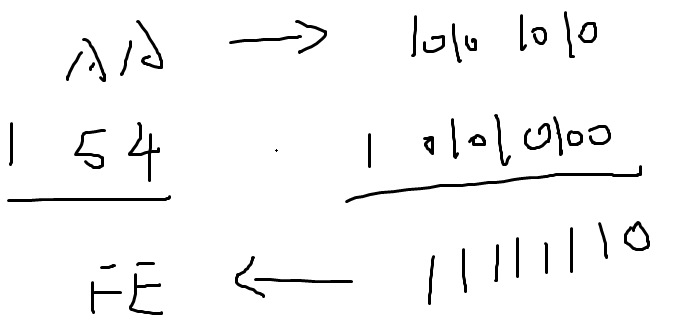 AA → 1010 1010
| 54 | 0101 0100
FE ← 11111110